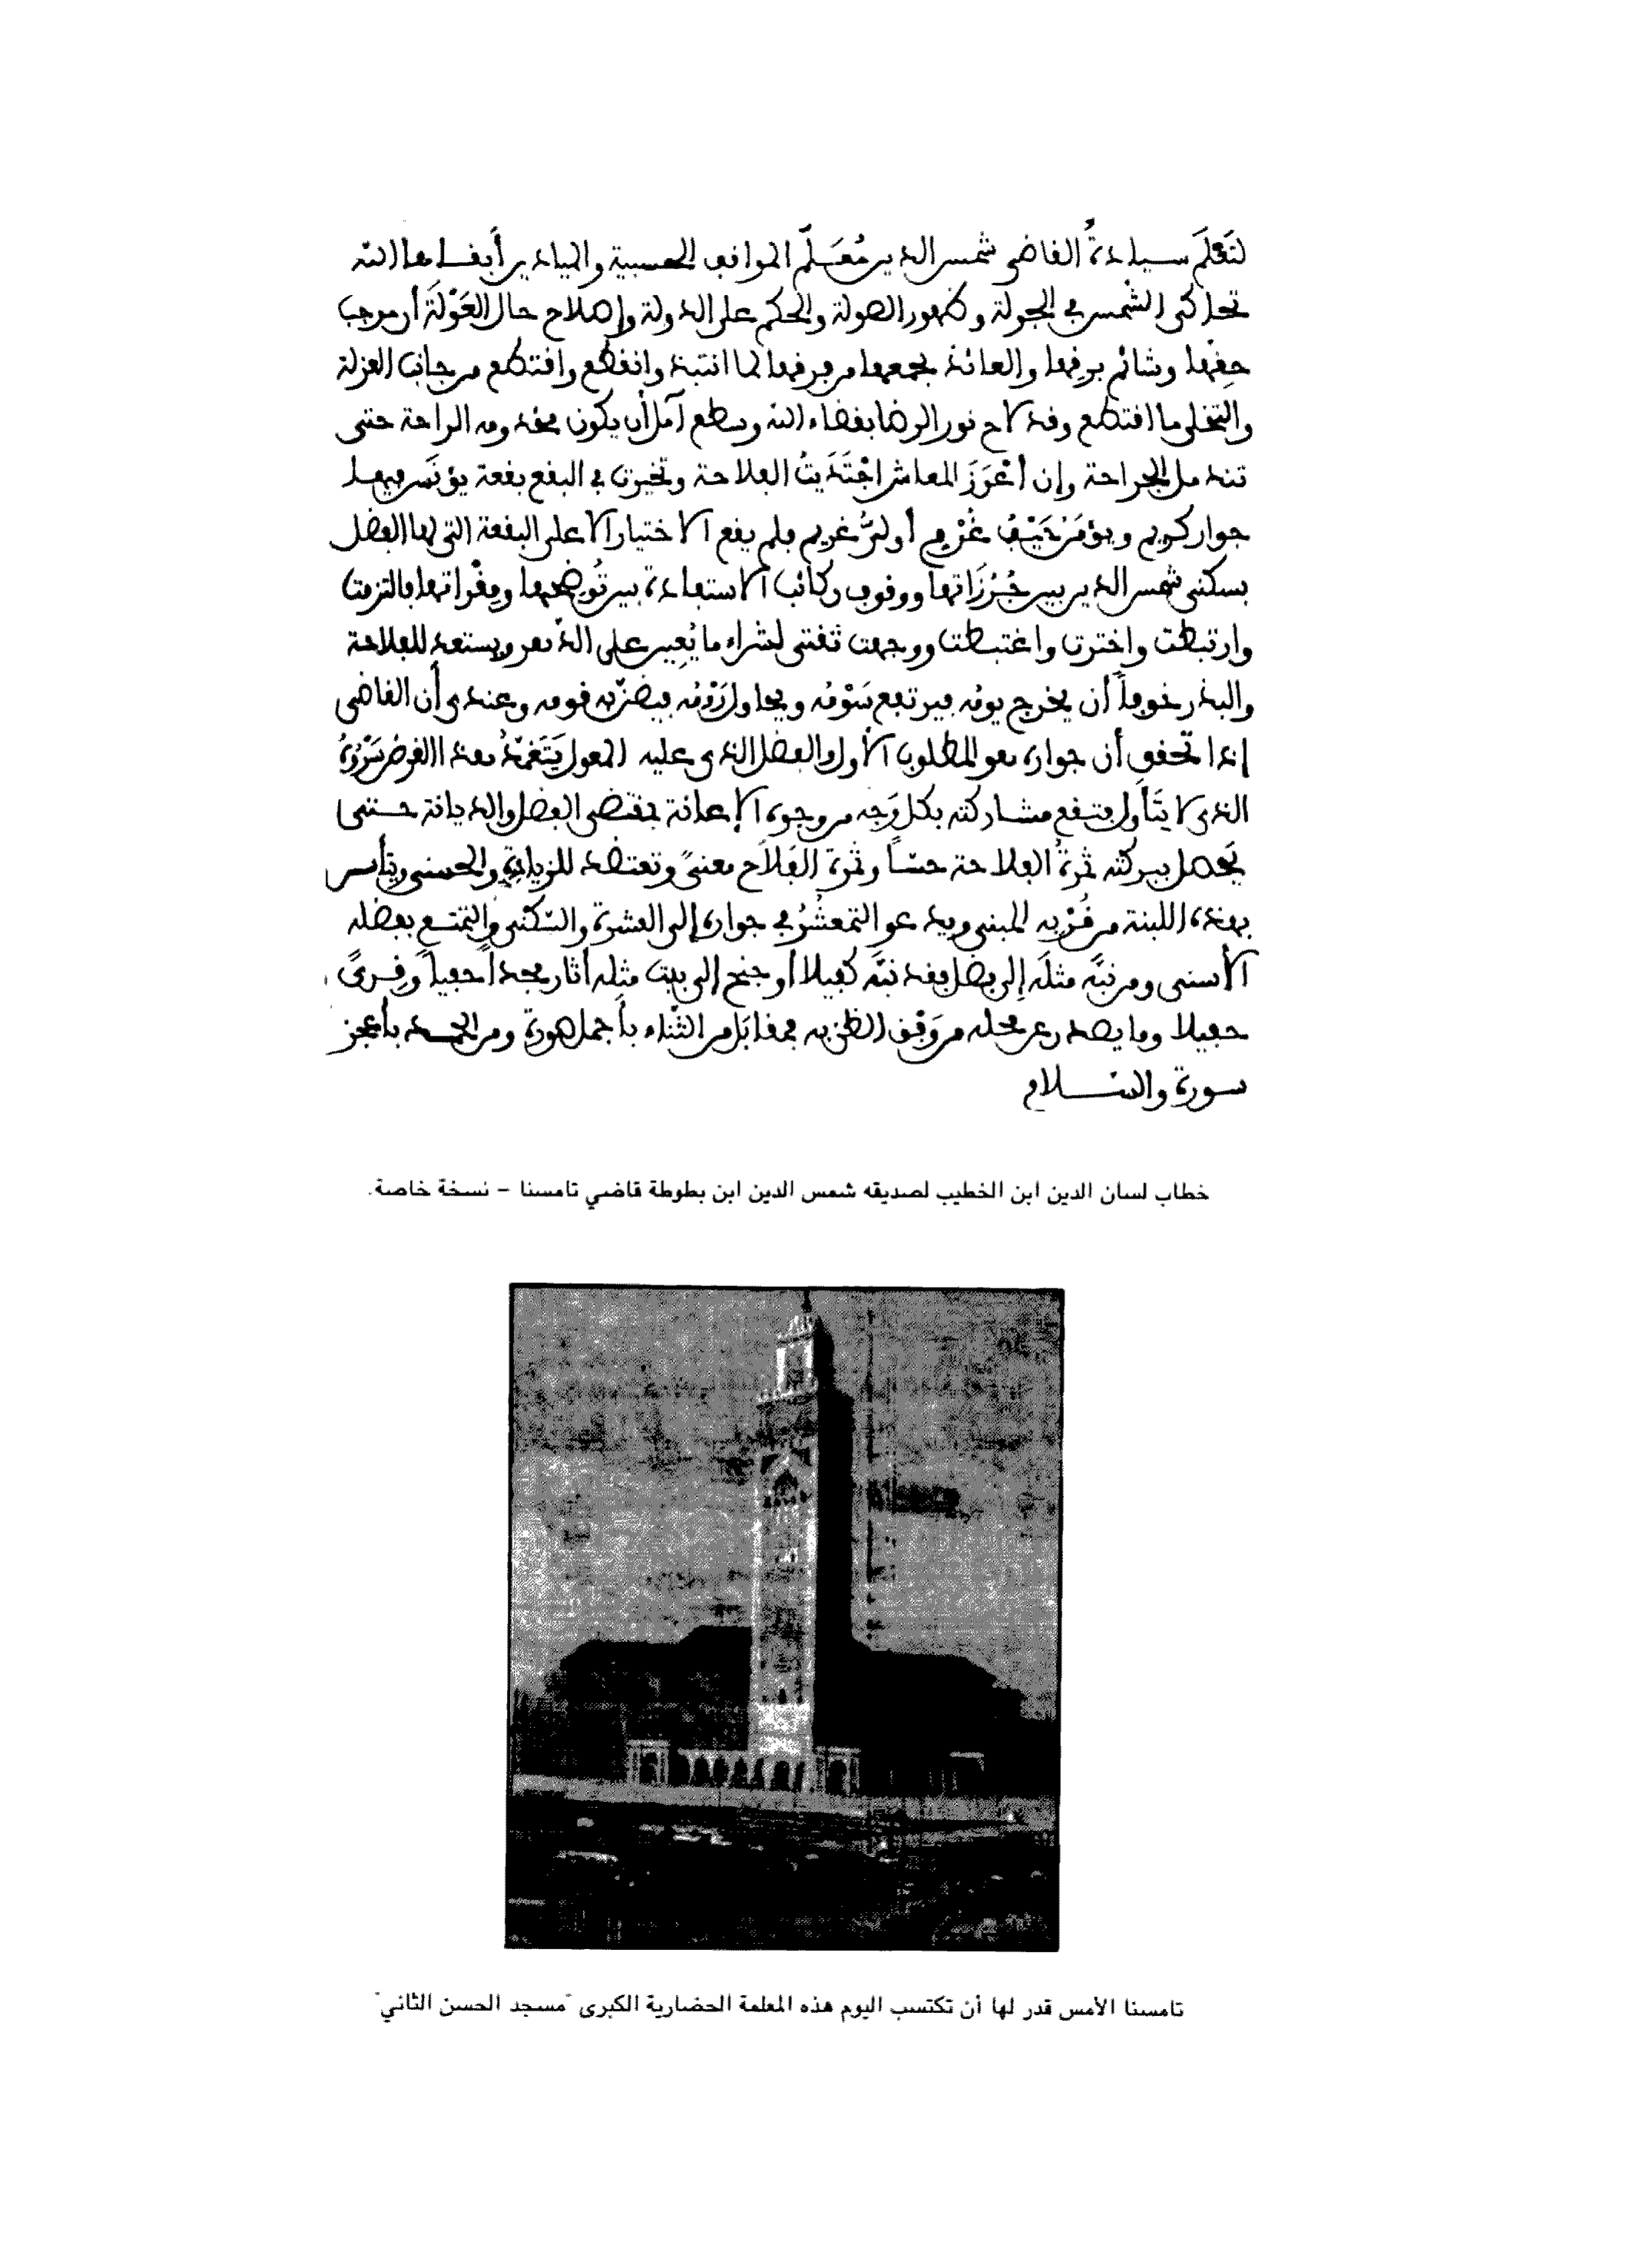 لتَعْلَم سيادةُ القاضي شمس الدين مُعَلّم المواقف الحسبية والميادين أبقاها الله
تحاكي الشمس في الجولة وظهور الصولة والحكم على الدولة وإصلاح حال العَوْلَة أن موجب
حقّها وشائم برقها والعائذ بجمعها من فرقها لما انتبذ وانقطع واقتطع من جانب العزلة
والتخلي ما اقتطع وقد لاح نور الرضا بقضاء الله وسطع آمل أن يكون مخدومه الراحة حتى
تندمل الجراحة وإن أعْوَزَ المعاش اجْتَدَيتُ الفلاحة وتخيرت في البقع بقعة يؤنَس فيها
جوار كريم ويؤمَن حَيْفُ غُرْم أو ليُّ غريم فلم يقع الاختيار الا على البقعة التي لها الفضل
بسكنى شمس الدين بين جُزُرَاتها ووقوف ركائب الاستفادة بين تُوضِحها ومِقْراتها فالتزمت
وارتبطت واخترت واغتبطت ووجهت ثقتي لشراء ما يُعين على الدّهر ويستعد للفلاحة
والبذر خوفاً أن يخرج يومُه فيرتفع سَوْمُه ويحاول رَوْمُه فيضنّ به قومه وعندي أن القاضي
إذا تحقق أن جواره هو المطلوب الأول والفضل الذي عليه المعول يَتَغمّدُ هذا الغرض سَرْوُهُ
الذي لا يتَأول فتقع مشاركته بكل وَجه من وجوه الإعانة بمقتضى الفضل والديانة حـتى
يَحصل ببركته ثمرةُ الفلاحة حسّاً وثمرة الفَلاَح معنىً وتعتضد للزيادة والحسنى ويتأسس
بهذه اللبنة من قُرْبه المبنى ويدعو التمعشُر في جواره إلى العشرة والسّكنى والتمتـع بفضله
الأسنى ومن نبَّه مثلَه إلى فضل فقد نبّه كفيلا أو جنح إلى بيت مثله أثار مجداً حفيلاً وقِـرىً
حفيلا وما يصدر عن محله من وَفْق الظن به فمقابَل من الثناء بأجمل صورة ومن الحمـد بأعجز
سورة والسـلام
خطاب لسان الدين ابن الخطيب لصديقه شمس الدين ابن بطوطة قاضي تامسنا – نسخة خاصة.
تامسنا الأمس قدر لها أن تكتسب اليوم هذه المعلمة الحضارية الكبرى "مسجد الحسن الثاني"